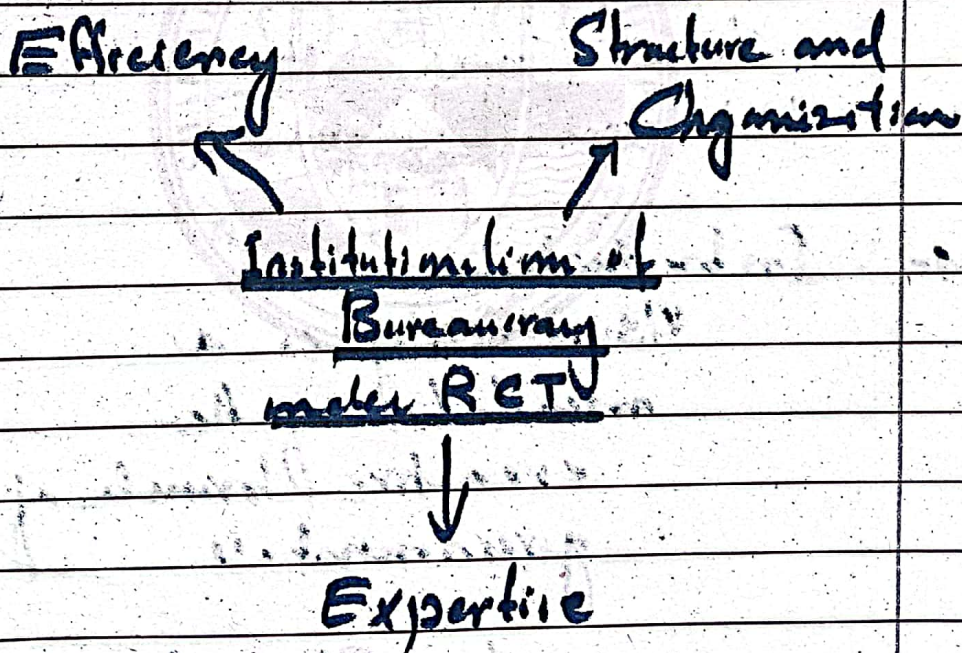 Efficiency
Structure and
Organization
Institutionalism of
Bureaucracy
under RCT
Expertise